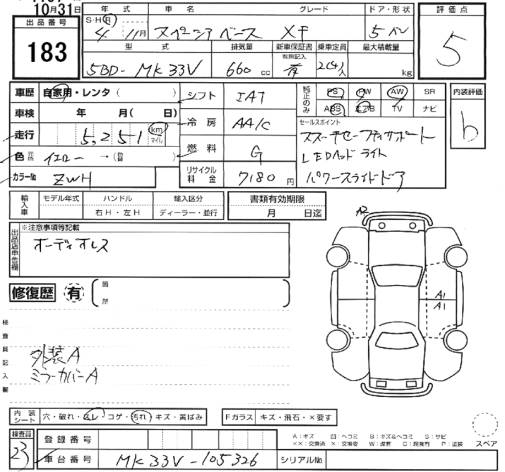 10月31日
出品番号
183
年式 車名 グレード ドア・形状
S・H・R
4年 11月 スペーシアベース XF 5ドア バン
型式 排気量 新車保証書 乗車定員 最大積載量
5BD-MK33V 660cc 有 2(4)人 kg
評価点
5
車歴 自家用・レンタ( )
車検 年 月( 日)
走行 5,251 km マイル
色 イエロー →
カラー№ ZWH
シフト IAT
冷房 AA/C
燃料 G
リサイクル料金 7180円
純正のみ PS PW AW SR
ABS エアB TV ナビ
セールスポイント
スズキセーフティサポート
LEDヘッドライト
パワースライドドア
内装評価
b
輸入車 モデル年式 ハンドル 輸入区分 書類有効期限
右H・左H ディーラー・並行 月 日迄
※注意事項等記載
オーディオレス
修復歴 有 箇所
検査員記入欄
外装A
ミラーカバーA
A2
A1
A1
内装シート 穴・破れ・スレ・コゲ・汚れ・キズ・黄ばみ
Fガラス キズ・飛石・×要す
検査員 登録番号
23 車台番号 MK33V-105326 シリアル№
A:キズ U:ヘコミ B:キズ&ヘコミ S:サビ
XX:交換済 X:交換要 W:波 C:腐食 P:塗装
スペア